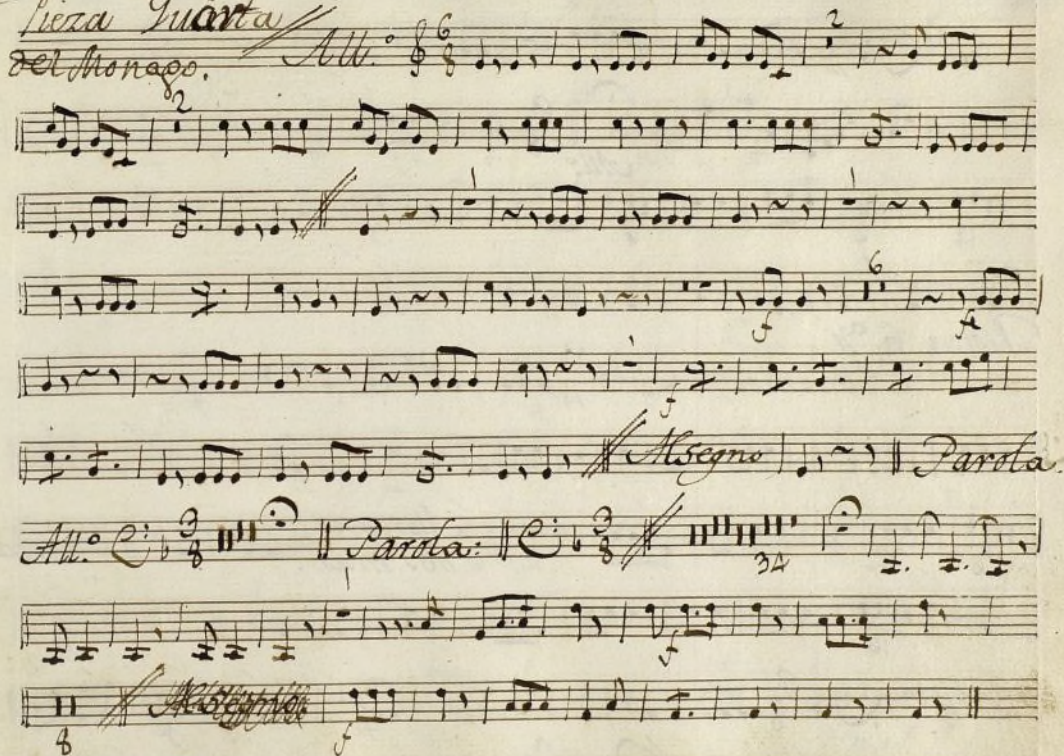 Pieza Quarta
del Monago. All.º 6 8 2
2
1 1
6
f f
1
f
Alsegno Parola.
All.º 3 8 Parola: 3 8 34
1
f
8 f